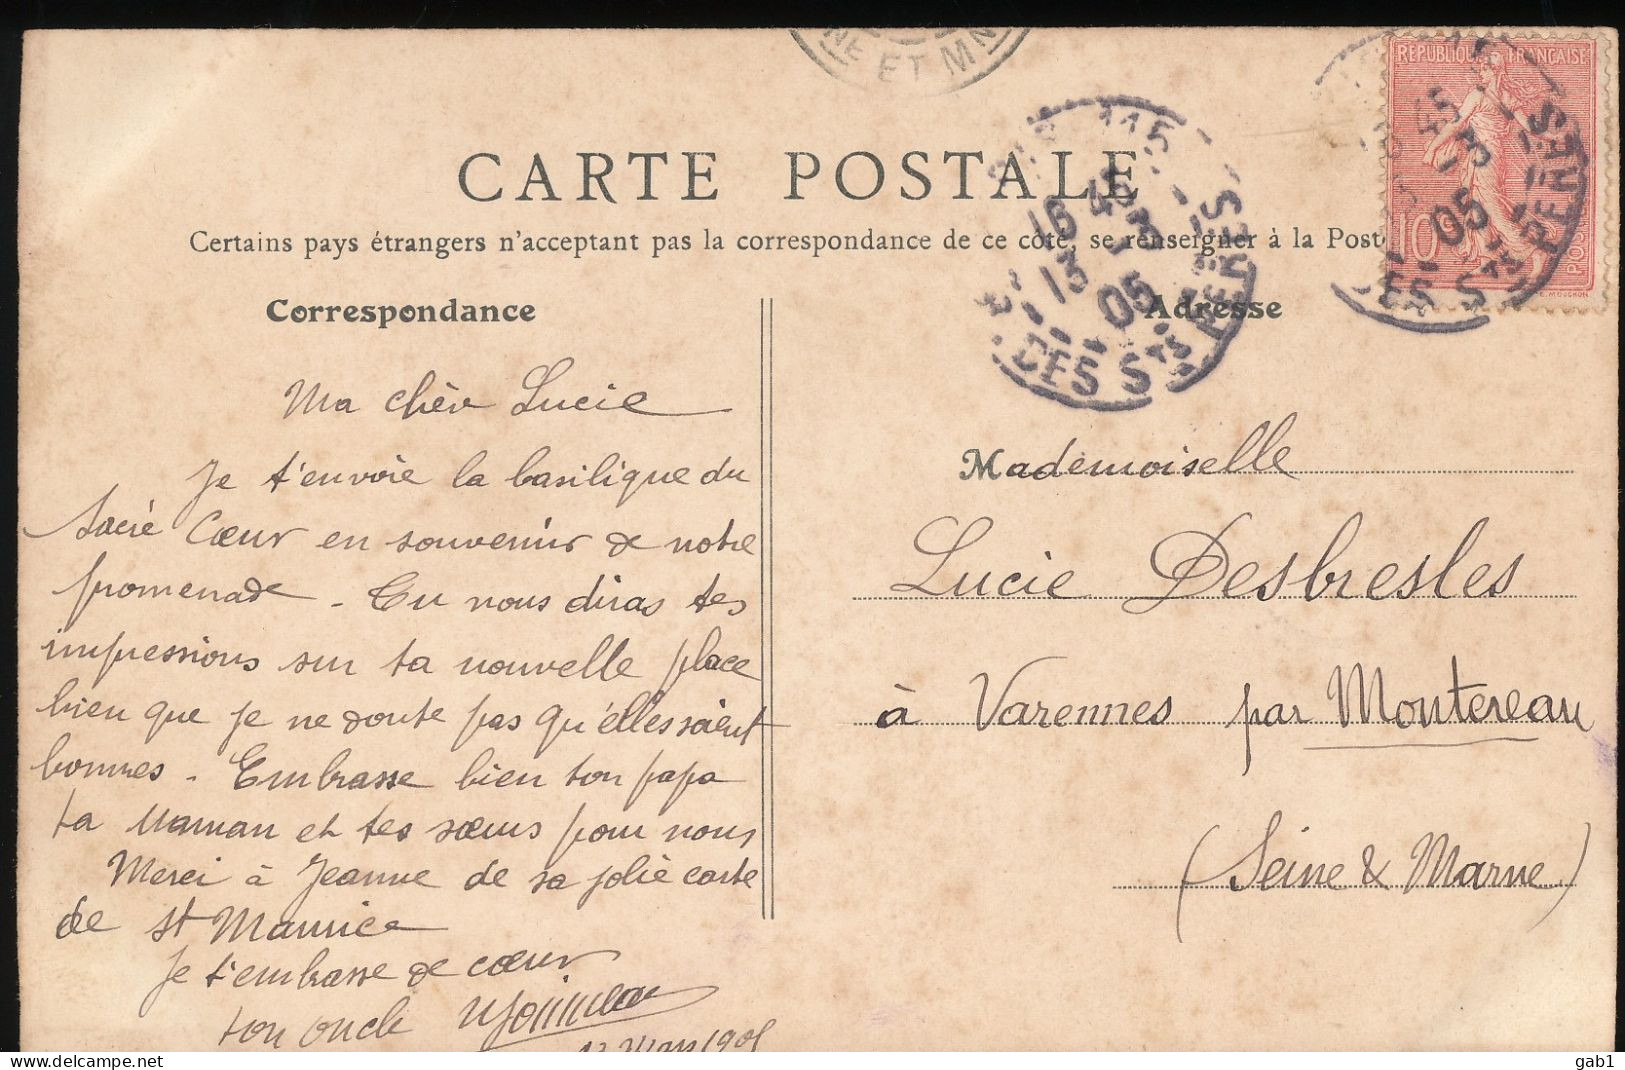 NE ET MN
RÉPUBLIQUE FRANÇAISE
10c
POS
E. MOUCHON
115
16 45
13 - 3
05
DES STS PERES
45
13 - 3
05
DES STS PERES
CARTE POSTALE
Certains pays étrangers n'acceptant pas la correspondance de ce côté, se renseigner à la Post
Correspondance
Ma chère Lucie
Je t'envoie la basilique du
Sacré Cœur en souvenir de notre
promenade - Tu nous diras tes
impressions sur ta nouvelle place
bien que je ne doute pas qu'elles soient
bonnes - Embrasse bien ton papa
ta maman et tes sœurs pour nous
Merci à Jeanne de sa jolie carte
de St Maurice
Je t'embrasse de cœur
ton oncle
mars 1905
Adresse
Mademoiselle
Lucie Desbresles
à Varennes par Montereau
(Seine & Marne)
gab1